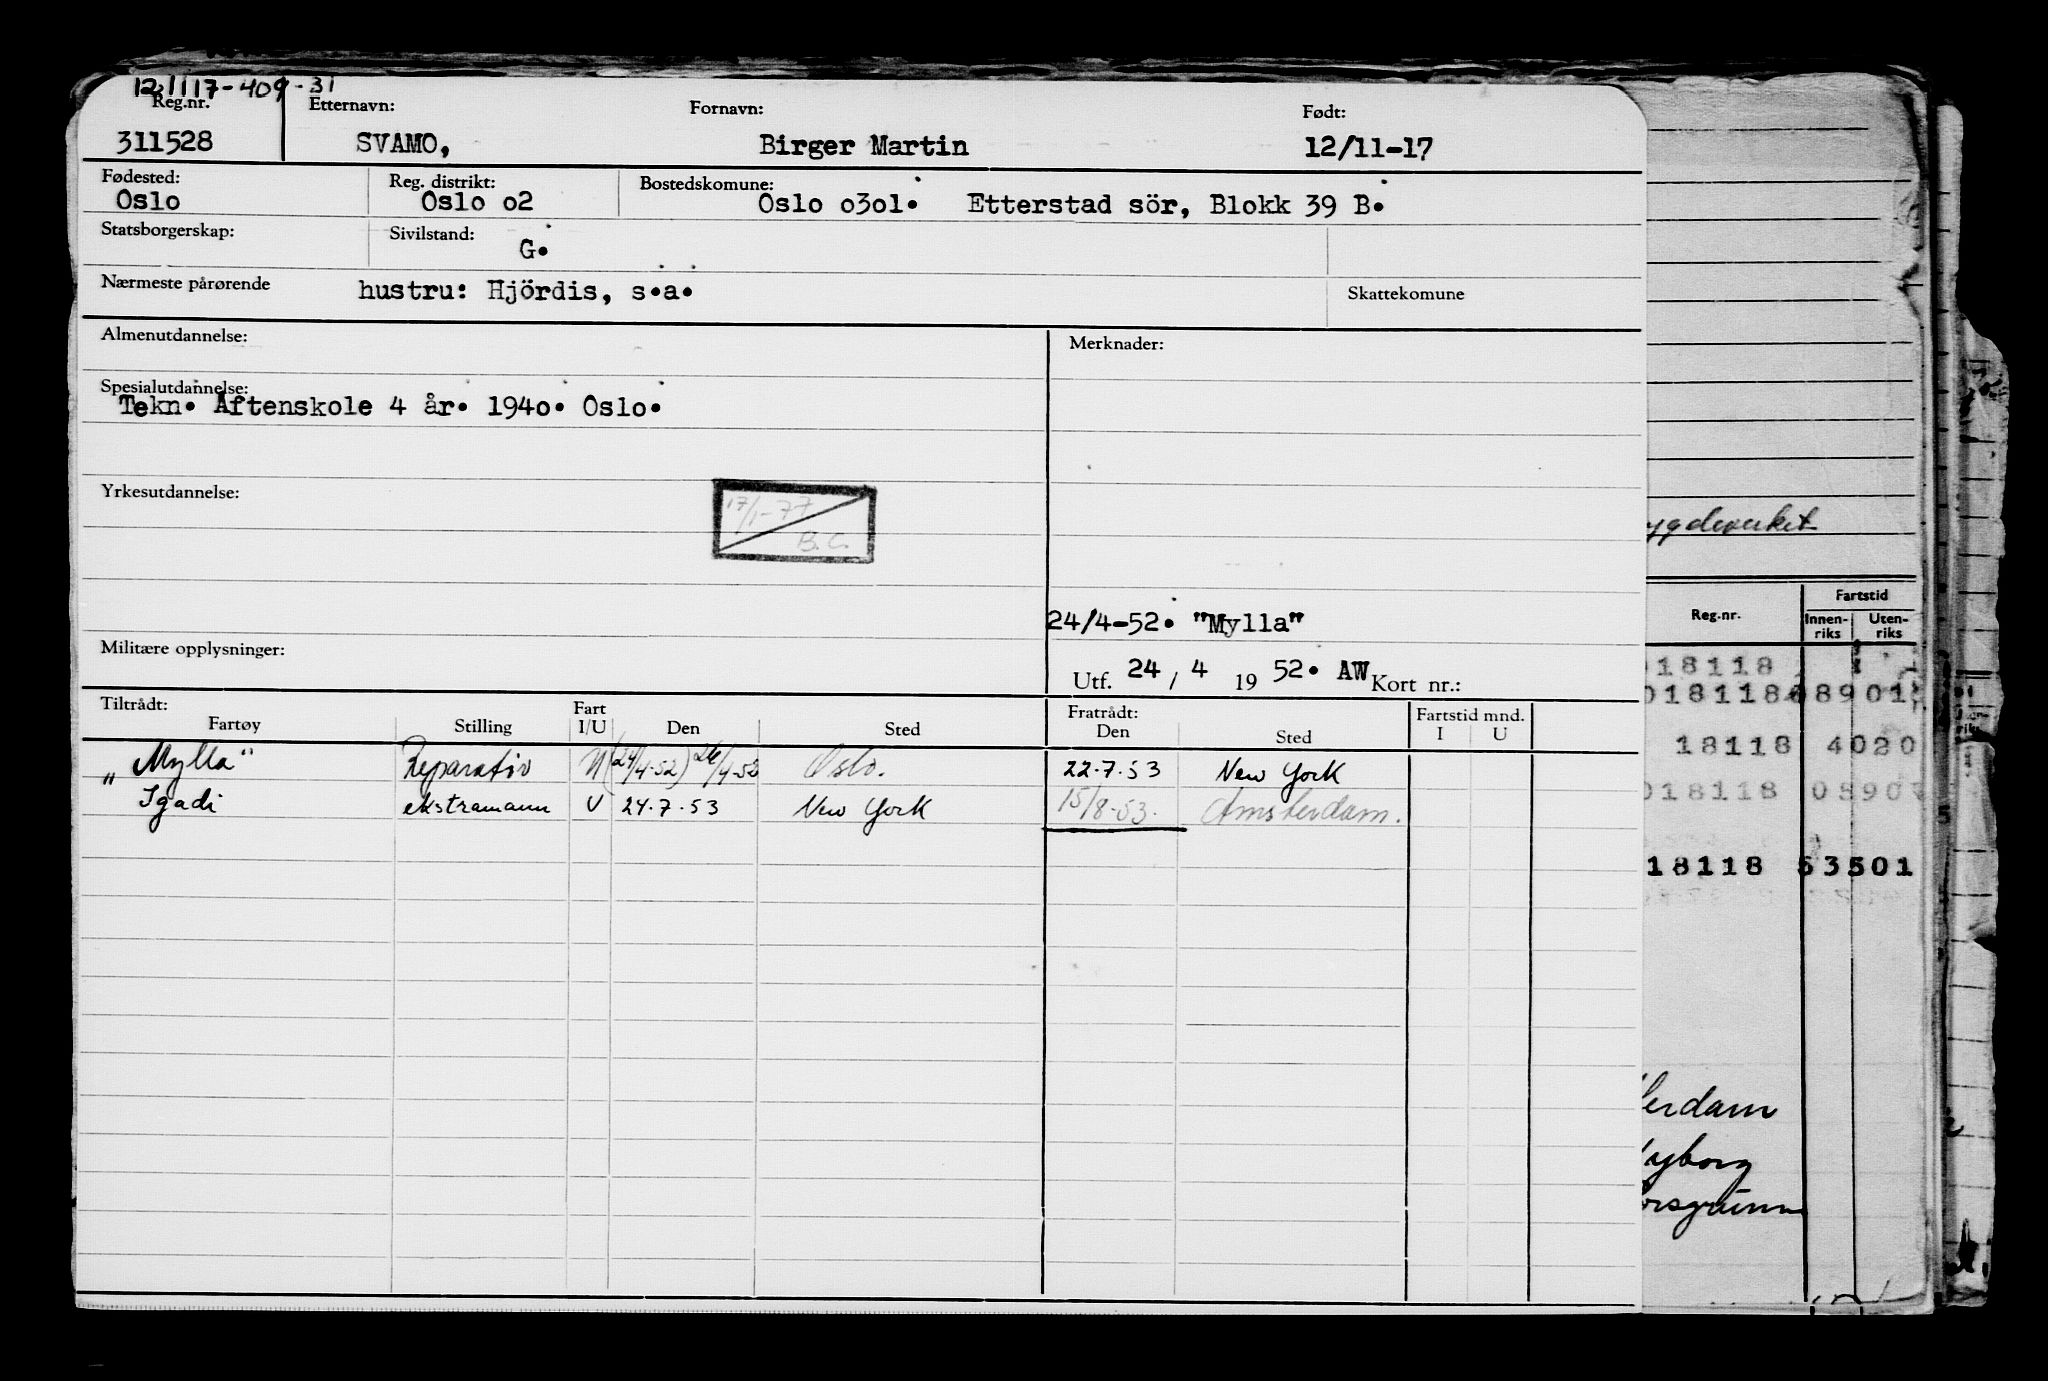 121117-409-31
Reg.nr. Etternavn: Fornavn: Født:
311528 SVAMO, Birger Martin 12/11-17
Fødested: Reg. distrikt: Bostedskomune:
Oslo Oslo o2 Oslo o3ol. Etterstad sör, Blokk 39 B.
Statsborgerskap: Sivilstand: G.
Nærmeste pårørende hustru: Hjördis, s.a. Skattekomune
Almenutdannelse: Merknader:
Spesialutdannelse:
Tekn. Aftenskole 4 år. 194o. Oslo.
Yrkesutdannelse:
17/1-77
B.C.
24/4-52. "Mylla"
Militære opplysninger:
Utf. 24 / 4 19 52. AW Kort nr.:
Tiltrådt: Fratrådt:
Fartøy Stilling Fart I/U Den Sted Den Sted Fartstid mnd. I U
"Mylla" Reparatör U (24/4-52) 26/4-52 Oslo. 22.7.53 New York
Igadi ekstramann U 24.7.53 New York 15/8-53. Amsterdam.
ygdeverket
Reg.nr. Fartstid
Innen-riks Uten-riks
018118
0181180 8901
18118 4020
018118 0890
18118 53501
terdam
yborg
orsgrunn